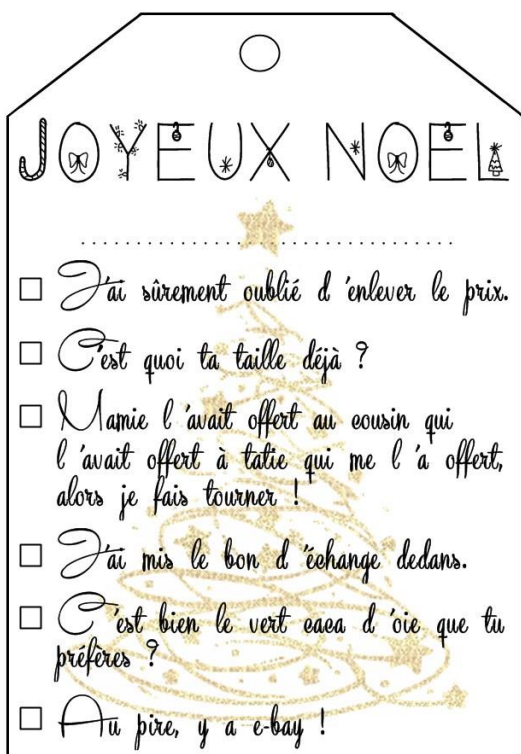 JOYEUX NOEL
.......................................
J'ai sûrement oublié d'enlever le prix.
C'est quoi ta taille déjà ?
Mamie l'avait offert au cousin qui
l'avait offert à tatie qui me l'a offert,
alors je fais tourner !
J'ai mis le bon d'échange dedans.
C'est bien le vert caca d'oie que tu
préfères ?
Au pire, y a e-bay !